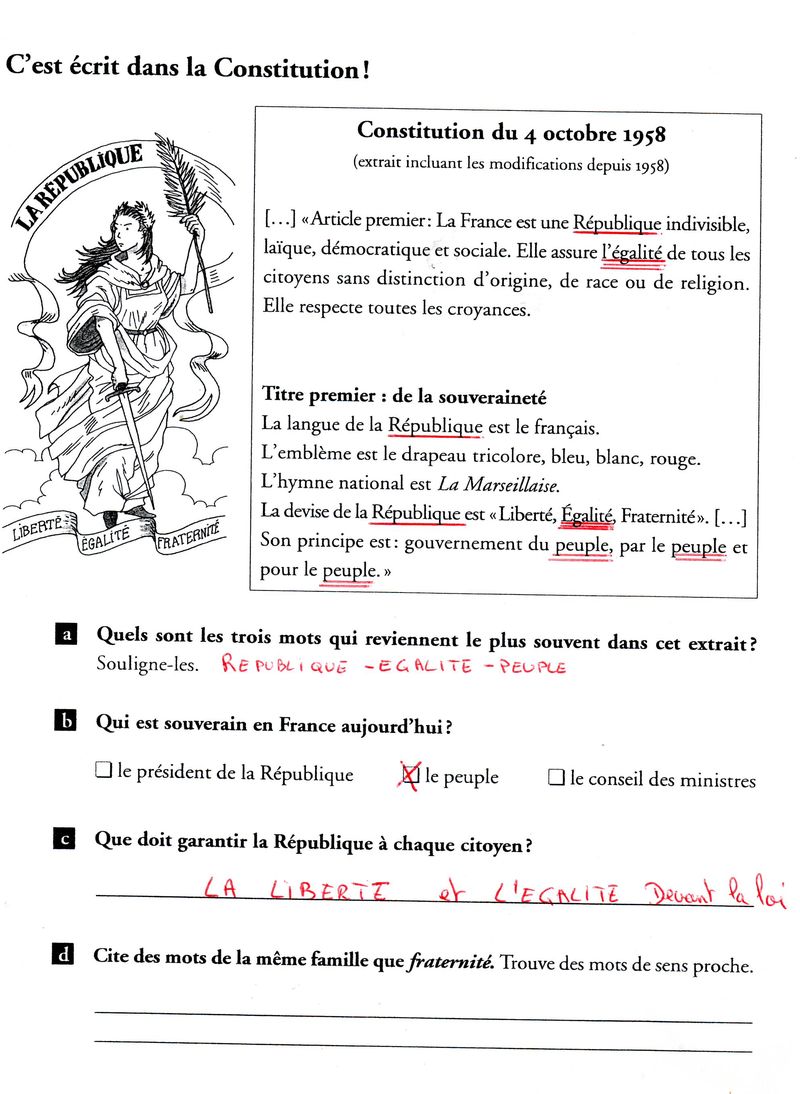 C'est écrit dans la Constitution !
LA RÉPUBLIQUE
LIBERTÉ
ÉGALITÉ
FRATERNITÉ
Constitution du 4 octobre 1958
(extrait incluant les modifications depuis 1958)
[…] « Article premier : La France est une République indivisible,
laïque, démocratique et sociale. Elle assure l'égalité de tous les
citoyens sans distinction d'origine, de race ou de religion.
Elle respecte toutes les croyances.
Titre premier : de la souveraineté
La langue de la République est le français.
L'emblème est le drapeau tricolore, bleu, blanc, rouge.
L'hymne national est La Marseillaise.
La devise de la République est « Liberté, Égalité, Fraternité ». […]
Son principe est : gouvernement du peuple, par le peuple et
pour le peuple. »
a Quels sont les trois mots qui reviennent le plus souvent dans cet extrait ?
Souligne-les. REPUBLIQUE - EGALITE - PEUPLE
b Qui est souverain en France aujourd'hui ?
le président de la République le peuple le conseil des ministres
c Que doit garantir la République à chaque citoyen ?
LA LIBERTE et L'EGALITE Devant la loi
d Cite des mots de la même famille que fraternité. Trouve des mots de sens proche.